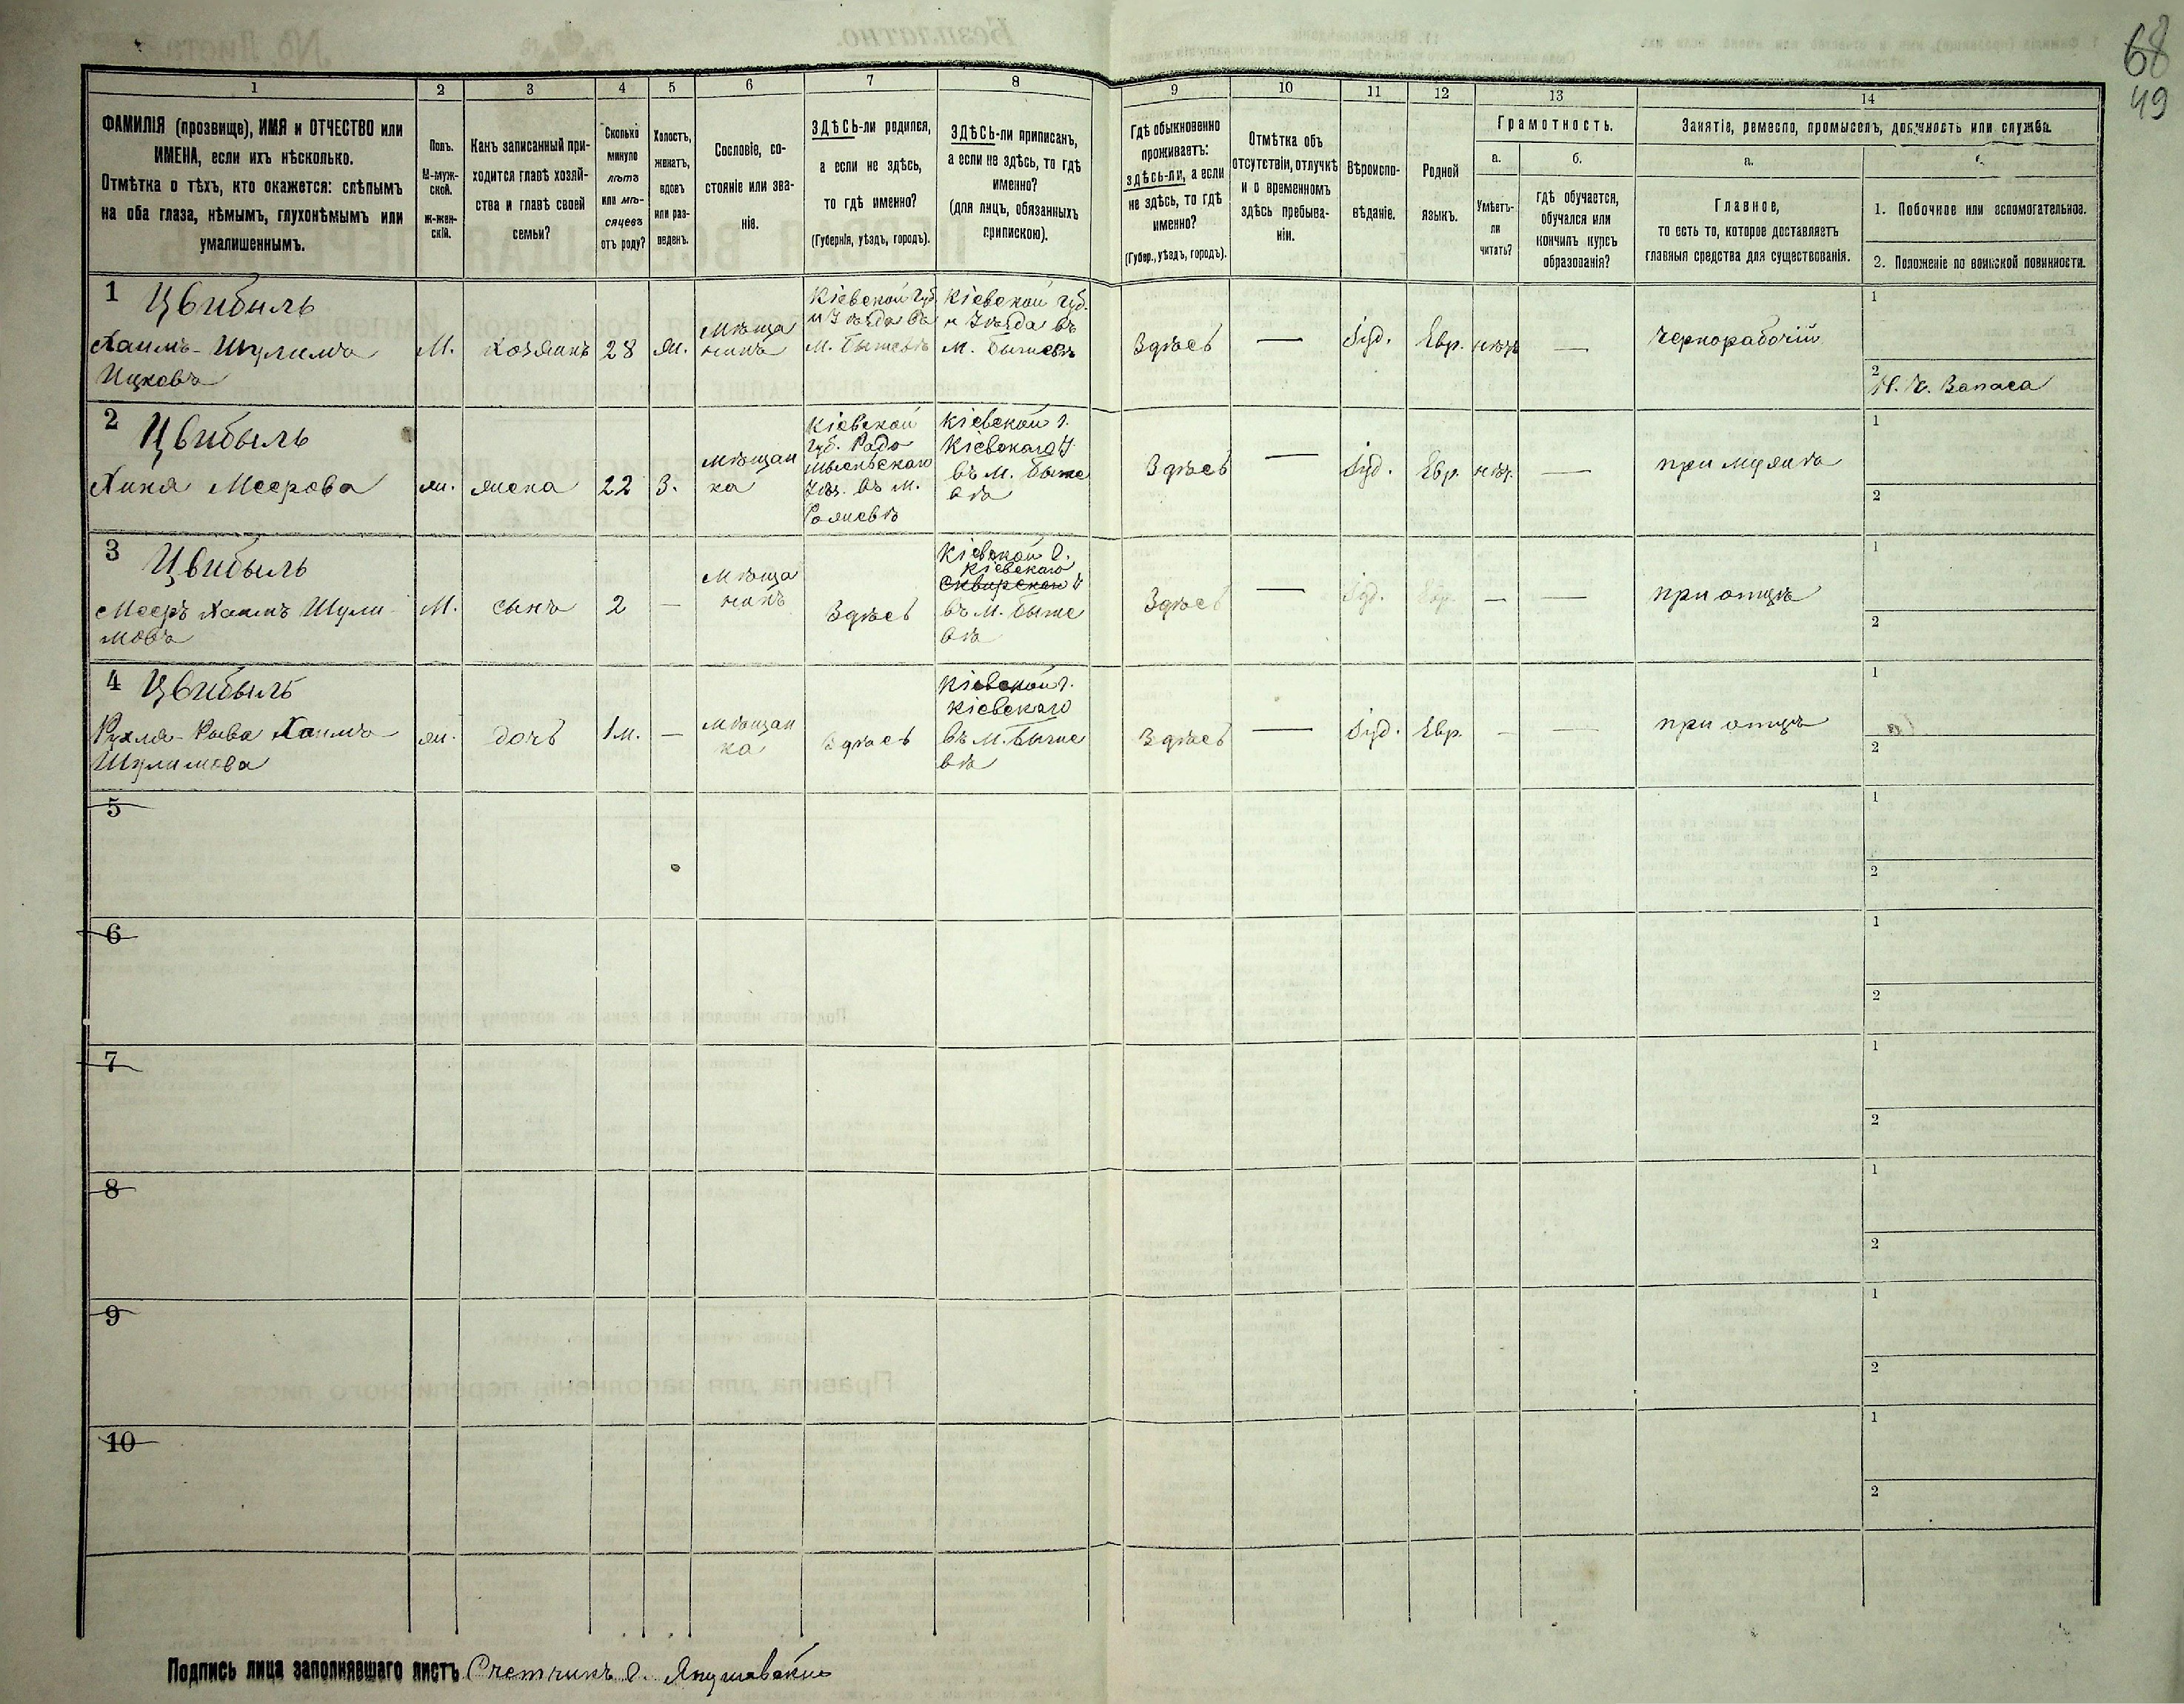 68
49
1 2 3 4 5 6 7 8 9 10 11 12 13 14
ФАМИЛІЯ (прозвище), ИМЯ и ОТЧЕСТВО или
ИМЕНА, если ихъ нѣсколько.
Отмѣтка о тѣхъ, кто окажется: слѣпымъ
на оба глаза, нѣмымъ, глухонѣмымъ или
умалишеннымъ.
Полъ.
М-муж-
ской.
ж-жен-
скій.
Какъ записанный при-
ходится главѣ хозяй-
ства и главѣ своей
семьи?
Сколько
минуло
лѣтъ
или мѣ-
сяцевъ
отъ роду?
Холостъ,
женатъ,
вдовъ
или раз-
веденъ.
Сословіе, со-
стояніе или зва-
ніе.
ЗДѢСЬ-ли родился,
а если не здѣсь,
то гдѣ именно?
(Губернія, уѣздъ, городъ).
ЗДѢСЬ-ли приписанъ,
а если не здѣсь, то гдѣ
именно?
(для лицъ, обязанныхъ
припискою).
Гдѣ обыкновенно
проживаетъ:
здѣсь-ли, а если
не здѣсь, то гдѣ
именно?
(Губер., уѣздъ, городъ).
Отмѣтка объ
отсутствіи, отлучкѣ
и о временномъ
здѣсь пребыва-
ніи.
Вѣроиспо-
вѣданіе.
Родной
языкъ.
Грамотность.
а.
Умѣетъ-
ли
читать?
б.
гдѣ обучается,
обучался или
кончилъ курсъ
образованія?
Занятіе, ремесло, промыселъ, должность или служба.
а.
Главное,
то есть то, которое доставляетъ
главныя средства для существованія.
1. Побочное или вспомогательное.
2. Положеніе по воинской повинности.
1 Цвибыль
Хаимъ-Шулимъ
Ицковъ
М.
хозяинъ
28
ж.
мѣща
нинъ
Кіевской губ.
и Уѣзда въ
м. Бышевѣ
Кіевской губ.
и Уѣзда въ
м. Бышевѣ
Здѣсь
—
Іуд.
Евр.
нѣтъ
—
Чернорабочій
1
2
Н. Ч. Запаса
2 Цвибыль
Хика Меерова
ж.
жена
22
З.
мѣщан
ка
Кіевской
губ. Радо
мысльскаго
Уѣз. въ м.
Рожевѣ
Кіевской г.
Кіевскаго У.
въ м. Быше
вѣ
Здѣсь
—
Іуд.
Евр.
нѣт.
—
при мужѣ
1
2
3 Цвибыль
Мееръ Хаимъ Шули-
мовъ
М.
сынъ
2
—
мѣща
нинъ
Здѣсь
Кіевской г.
Кіевскаго
Сквирскаго У
въ м. Быше
вѣ
Здѣсь
—
Іуд.
Евр.
—
—
при отцѣ
1
2
4 Цвибыль
Рухля-Рыва Хаимъ
Шулимова
ж.
дочь
1 м.
—
мѣщан
ка
Здѣсь
Кіевской г.
Кіевскаго
въ м. Быше
вѣ
Здѣсь
—
Іуд.
Евр.
—
—
при отцѣ
1
2
5
1
2
6
1
2
7
1
2
8
1
2
9
1
2
10
1
2
Подпись лица заполнявшаго листъ Счетчикъ